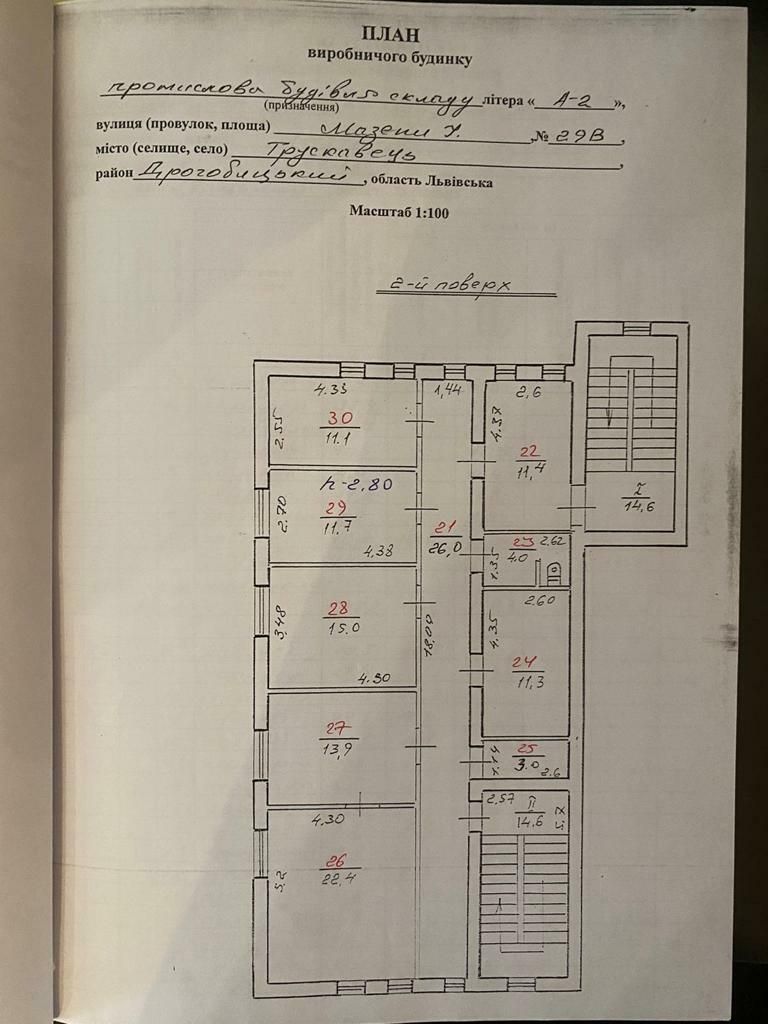 ПЛАН
виробничого будинку
промислова будівля складу літера « А-2 »,
(призначення)
вулиця (провулок, площа) Мазепи І. ,№ 29В ,
місто (селище, село) Трускавець ,
район Дрогобицький , область Львівська
Масштаб 1:100
2-й поверх
4.33 1,44 2,6
2.55 30 11.1 4.37 22 11,4
h-2,80
2,70 29 11,7 4.38
I 14,6
21 26,0
23 4.0 2,62
3,48 28 15.0 4.30
18,00
2.60
4,35 24 11,3
27 13,9
25 3.0 2.6
4,30
2,57 II 14.6
5,2 26 22,4